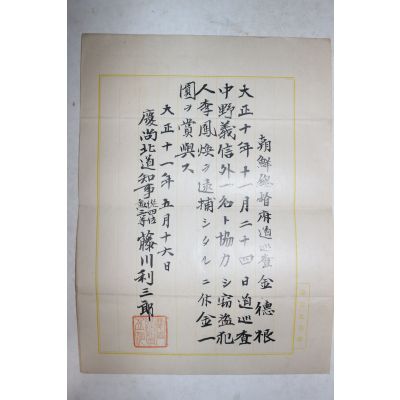 朝鮮總督府道巡査金德根
大正十年十一月二十四日道巡査
中野義信外一名ト協力シ窃盗犯
人李鳳煥ヲ逮捕シタルニ付金一
圓ヲ賞與ス
大正十一年五月十六日
慶尚北道知事從四位勲三等藤川利三郎